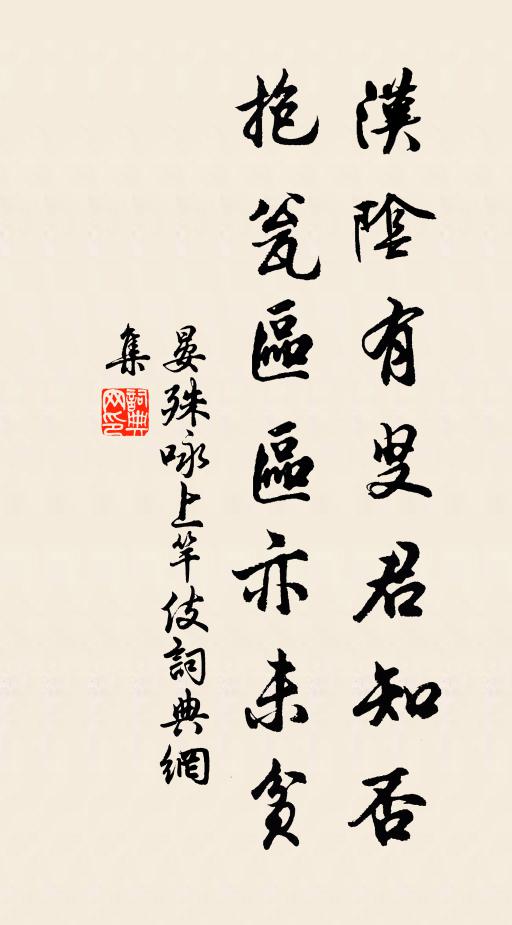 漢陰有叟君知否
抱瓮區區亦未貧
晏殊咏上竿伎詞典網
集
詞典
网印